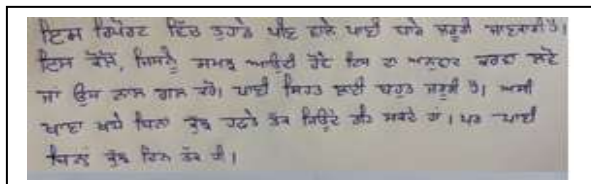 ਇਸ ਰਿਪੋਰਟ ਵਿੱਚ ਤੁਹਾਡੇ ਪੀਣ ਵਾਲੇ ਪਾਣੀ ਬਾਰੇ ਜਰੂਰੀ ਜਾਣਕਾਰੀ ਹੈ।
ਇਸ ਕੋਲੋਂ, ਜਿਸਨੂੰ ਸਮਝ ਆਉਂਦੀ ਹੋਵੇ ਇਸ ਦਾ ਅਨੁਵਾਦ ਕਰਵਾ ਲਵੋ
ਜਾਂ ਉਸ ਨਾਲ ਗੱਲ ਕਰੋ। ਪਾਣੀ ਸਿਹਤ ਲਈ ਬਹੁਤ ਜਰੂਰੀ ਹੈ। ਅਸੀਂ
ਖਾਣਾ ਖਾਧੇ ਬਿਨਾ ਕੁੱਝ ਹਫਤੇ ਤੱਕ ਜਿਉਂਦੇ ਰਹਿ ਸਕਦੇ ਹਾਂ। ਪਰ ਪਾਣੀ
ਬਿਨਾਂ ਕੁੱਝ ਦਿਨ ਤੱਕ ਹੀ।